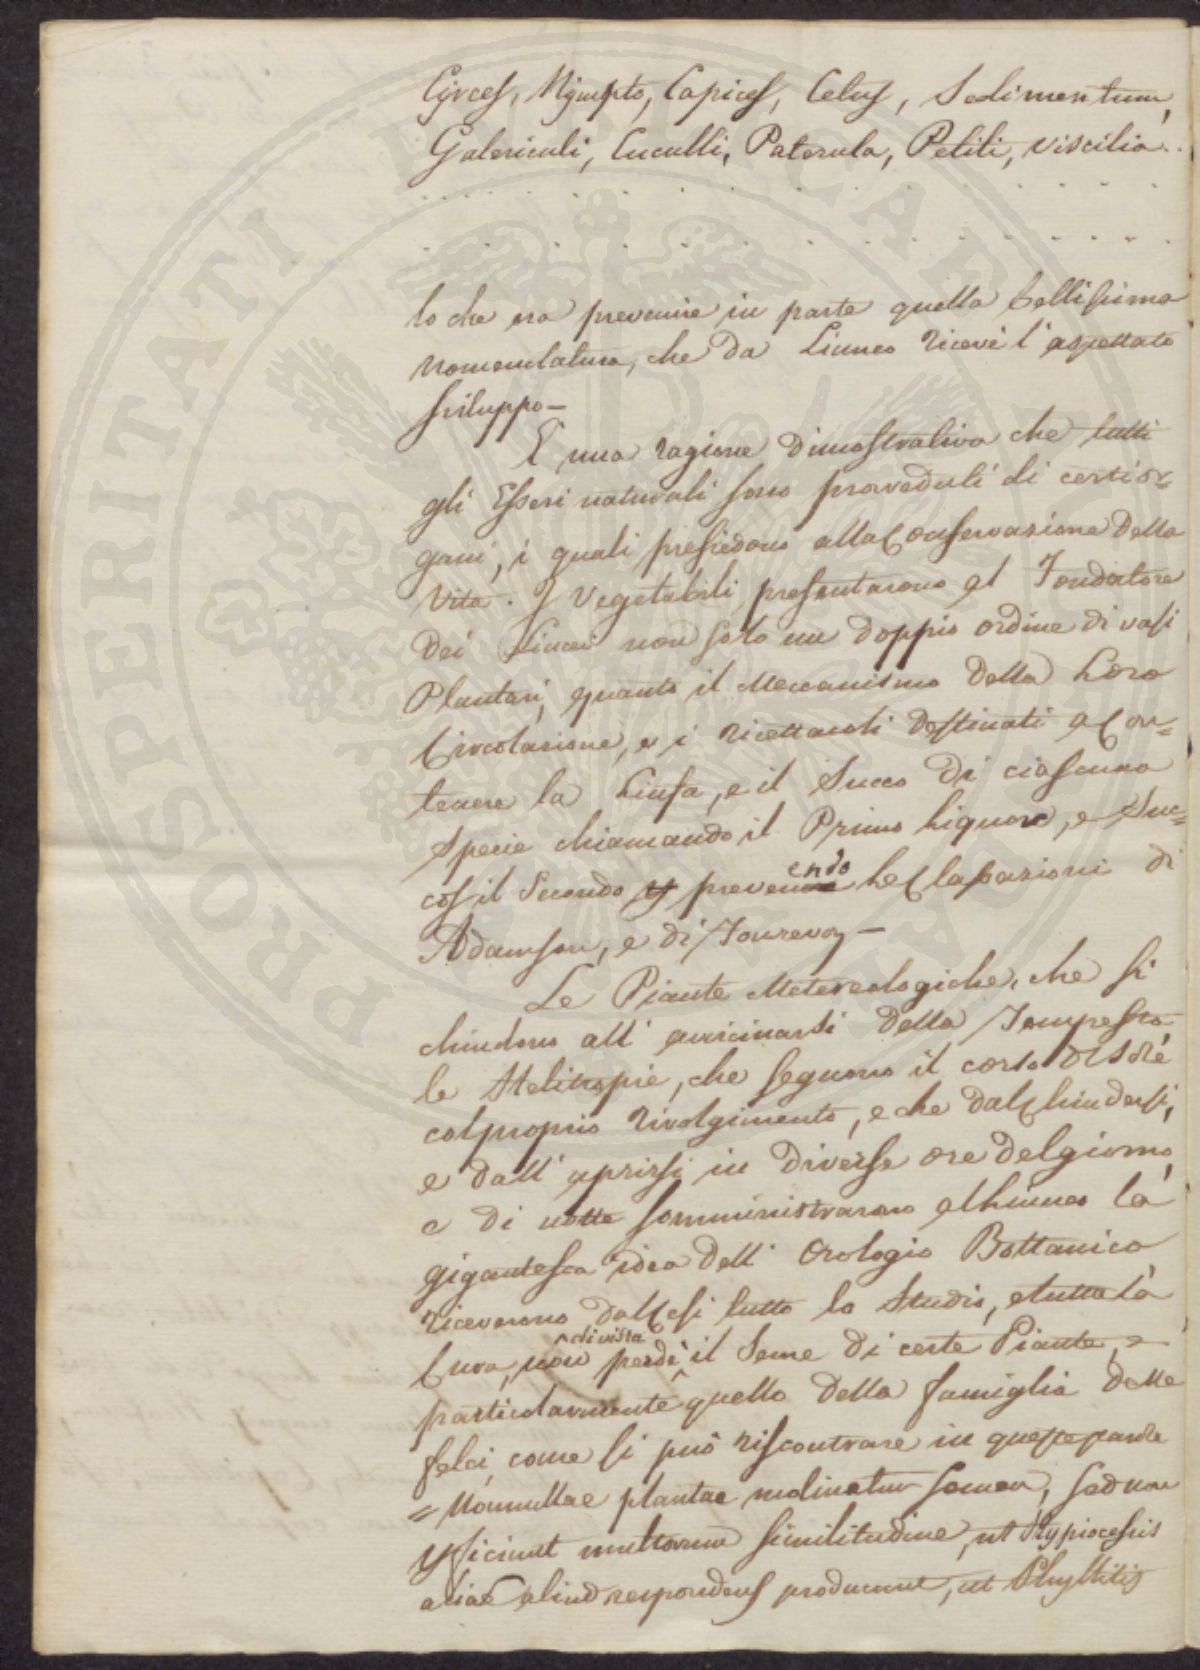 Capices, Celus, Sedimentum,
Galericuli, Cuculli, Paterula, Petili, Viscilia..
lo che era prevenire in parte quella bellissima
nomenclatura, che da Linneo ricevè l'aspettato
sviluppo—
È una ragione dimostrativa che tutti
gli Esseri naturali sono proveduti di certi or=
gani, i quali presiedono alla Conservazione della
Vita. I Vegetabili presentarono al Fondatore
dei Lincei non solo un doppio ordine di vasi
Plantari, quanto il Meccanismo della Loro
Circolazione, e i ricettacoli destinati a Con=
tenere la Linfa, e il Succo di ciascuna
specie chiamando il Primo Liquore, e Suc=
cos il Secondo prevenendo le di
Adamson, e di
Le Piante Metereologiche, che si
chiudono all'avvicinarsi della Tempesta
le Helitropie, che seguono il corso del Sole
col proprio rivolgimento, e che dal Chiudersi,
e dall'aprirsi in diverse ore del giorno,
e di notte somministrarono al Linneo la
gigantesca idea dell'Orologio Bottanico,
riceverono dal Cesi tutto lo Studio, e tutta la
Cura, non perdè di vista il Seme di certe Piante, e
particolarmente quello della famiglia delle
felci, come si può riscontrare in queste parole
= Nonnullae plantae moliuntur semen, sed non
multarum similitudine, ut Hypiocessis
aliae aliud respondens producunt, ut Phyllitis